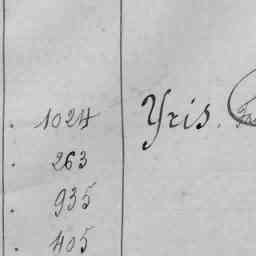 . 1024 Yris.
. 263
. 935
. 405